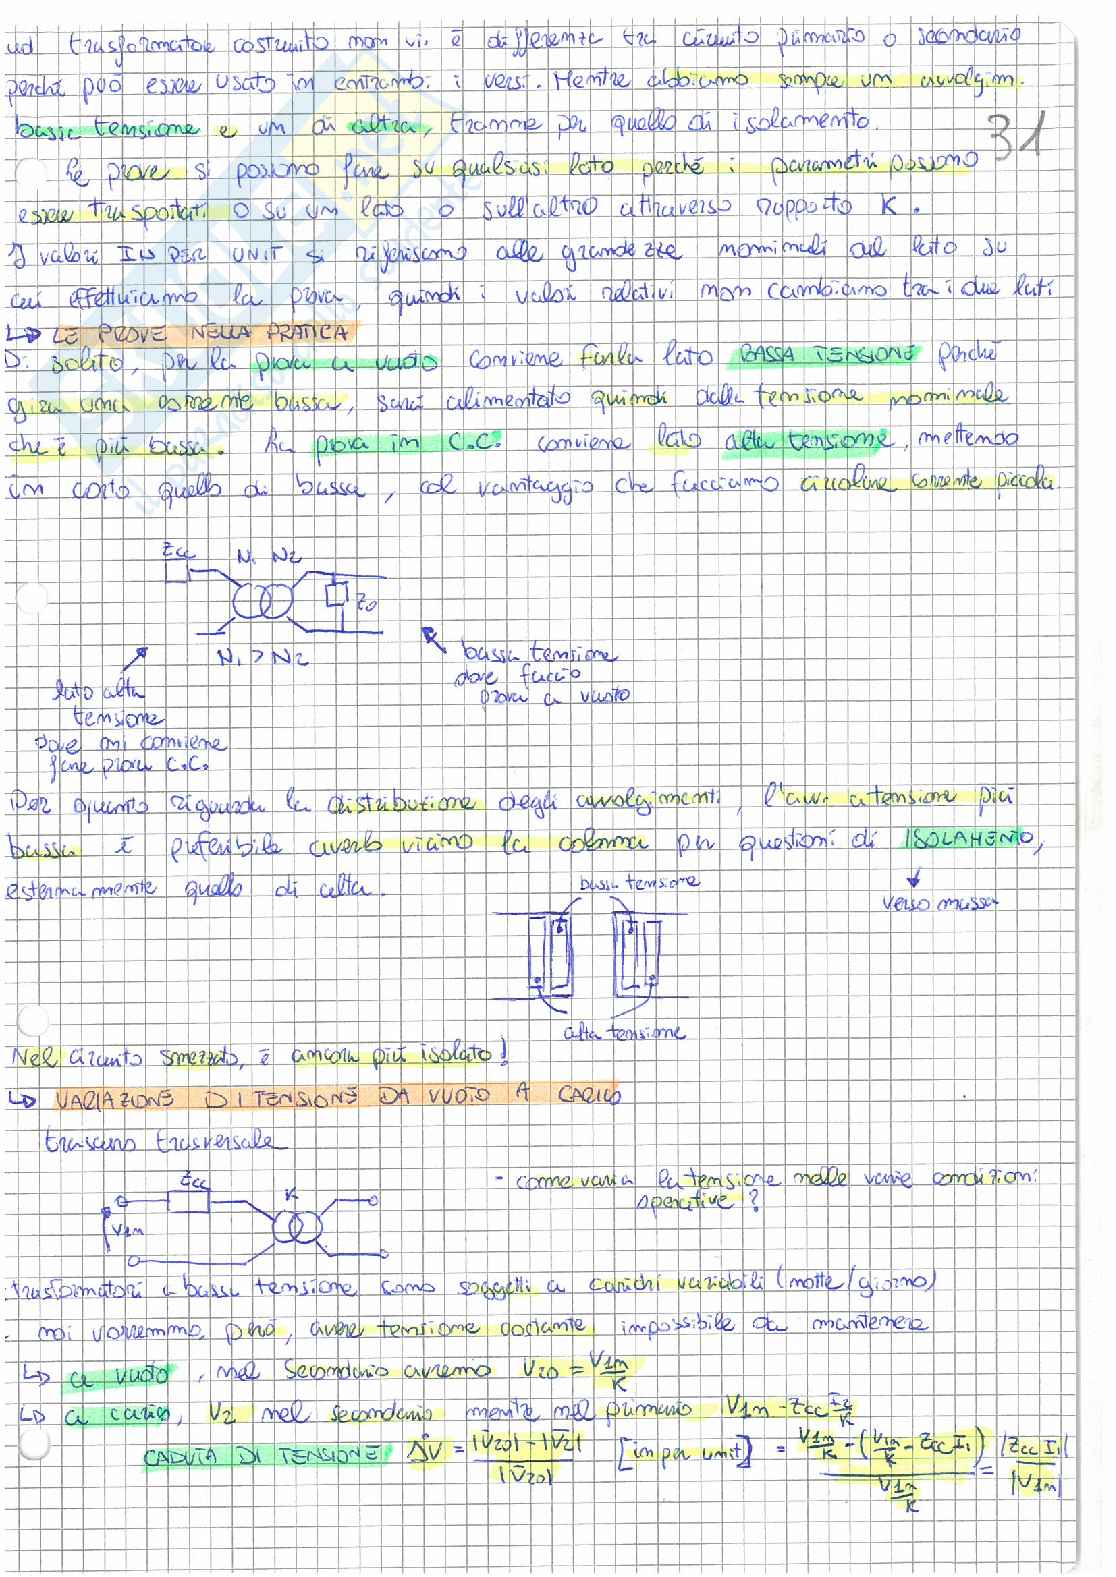 ud trasformatore costruito non vi è differenza tra circuito primario o secondario
perché può essere usato in entrambi i versi. Mentre abbiamo sempre un avvolgim.
bassa tensione e un di altra, tranne per quello di isolamento.
31
Le prove si possono fare su qualsiasi lato perché i parametri possono
essere trasportati o su un lato o sull'altro attraverso rapporto K.
I valori IN PER UNIT si riferiscono alle grandezze nominali del lato su
cui effettuiamo la prova, quindi i valori relativi non cambiano tra i due lati
↳ LE PROVE NELLA PRATICA
Di solito, per la prova a vuoto conviene farla lato BASSA TENSIONE perché
gira una corrente bassa, sarà alimentato quindi dalla tensione nominale
che è più bassa. La prova in C.C. conviene lato alta tensione, mettendo
in corto quello di bassa, col vantaggio che facciamo circolare corrente piccola.
Zcc N1 N2
Z0
N1 > N2
lato alta
tensione
dove mi conviene
fare prova C.C.
bassa tensione
dove faccio
prova a vuoto
Per quanto riguarda la distribuzione degli avvolgimenti, l'avv. a tensione più
bassa è preferibile averlo vicino la colonna per questioni di ISOLAMENTO,
esternamente quello di alta.
bassa tensione
verso massa
alta tensione
Nel circuito smezzato, è ancora più isolato!
↳ VARIAZIONE DI TENSIONE DA VUOTO A CARICO
trascuro trasversale
Zcc K
V1n
- come varia la tensione nelle varie condizioni
operative?
trasformatori a bassa tensione sono soggetti a carichi variabili (notte/giorno)
noi vorremmo, però, avere tensione costante impossibile da mantenere
↳ a vuoto, nel secondario avremo V20 = V1n/K
↳ a carico, V2 nel secondario mentre nel primario V1n - Zcc I2/K
CADUTA DI TENSIONE ΔV = |V̄20| - |V̄2| / |V̄20| [in per unit] = V1n/K - (V1n/K - Zcc I1) / V1n/K = |Zcc I1| / |V1n|